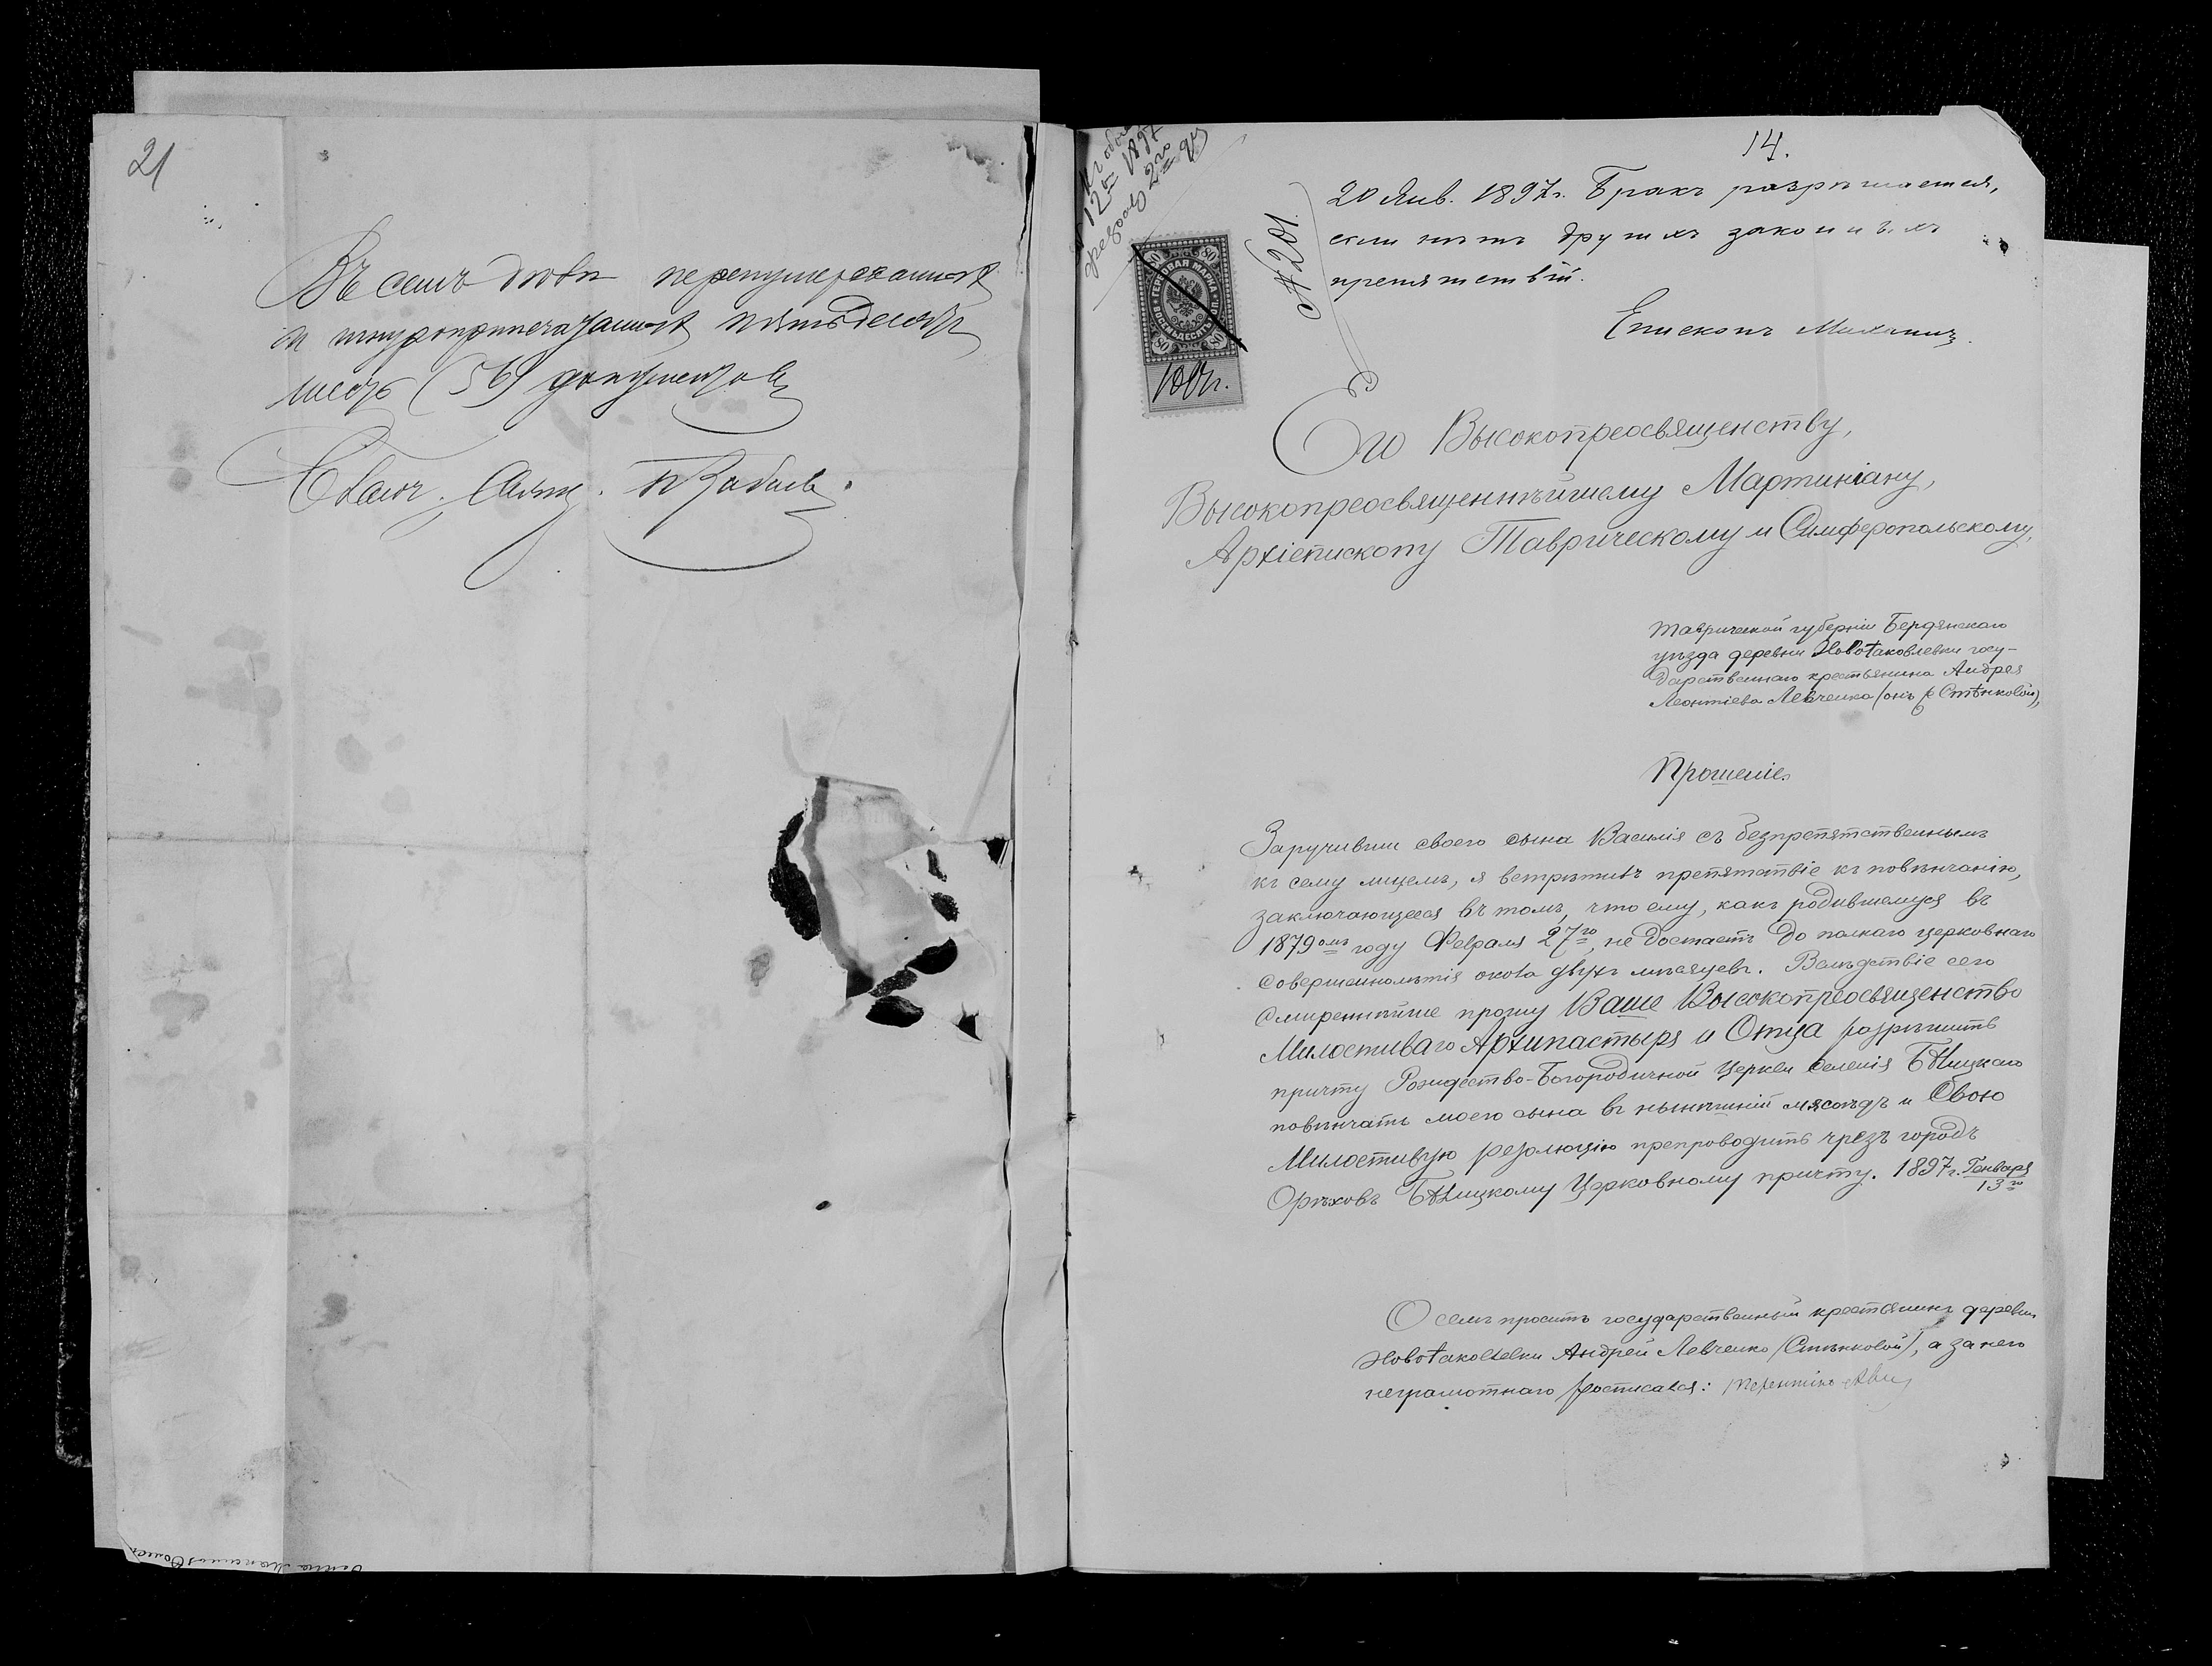 21
Въ семъ дѣлѣ перенумерованныхъ
и шнуроприпечатанныхъ пятьдесятъ
шесть (56) документовъ
Свящ.
14.
20 Янв. 1897г. Бракъ разрѣшается,
если нѣтъ другихъ законныхъ
препятствій.
Епископъ
№ 201.
12го 1897
80 80
ГЕРБОВАЯ МАРКА
80 80
Его Высокопреосвященству,
Высокопреосвященнѣйшему Мартиніану,
Архіепископу Таврическому и Симферопольскому,
Таврической губерніи Бердянскаго
уѣзда деревни НовоІаковлевки госу-
дарственнаго крестьянина Андрея
Леонтіева Левченка (онъ же Стѣнковой),
Прошеніе.
Заручивши своего сына Василія съ безпрепятственнымъ
къ сему лицемъ, я встрѣтилъ препятствіе къ повѣнчанію,
заключающееся въ томъ, что ему, какъ родившемуся въ
1879омъ году Февраля 27го, не достаетъ до полнаго церковнаго
совершеннолѣтія около двухъ мѣсяцевъ. Вслѣдствіе сего
смиреннѣйше прошу Ваше Высокопреосвященство
Милостиваго Архипастыря и Отца разрѣшить
причту Рождество-Богородичной Церкви селенія Бѣлицкаго
повѣнчать моего сына въ нынѣшній мясоѣдъ и Свою
Милостивую резолюцію препроводить чрезъ городъ
Орѣховъ Бѣлицкому Церковному причту. 1897г. Генваря
13го
О семъ проситъ государственный крестьянинъ деревни
НовоІаковлевки Андрей Левченко (Стѣнковой), а за него
неграмотнаго росписался: